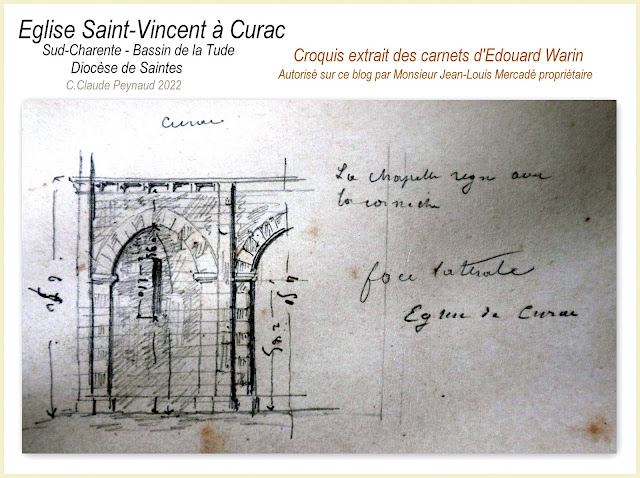 Eglise Saint-Vincent à Curac
Sud-Charente - Bassin de la Tude
Diocèse de Saintes
C.Claude Peynaud 2022
Croquis extrait des carnets d'Edouard Warin
Autorisé sur ce blog par Monsieur Jean-Louis Mercadé propriétaire
Curac
La chapelle avec
la corniche
face laterale
Eglise de Curac